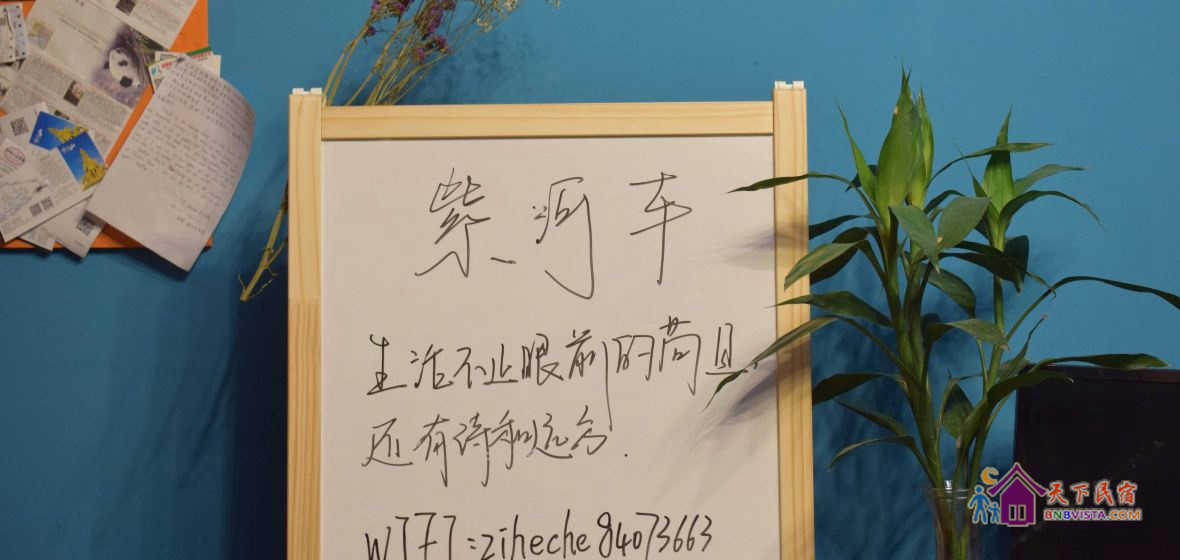 紫河车
生活不止眼前的苟且.
还有诗和远方.
WIFI:ziheche84073663
天下民宿
BNBVISTA.COM